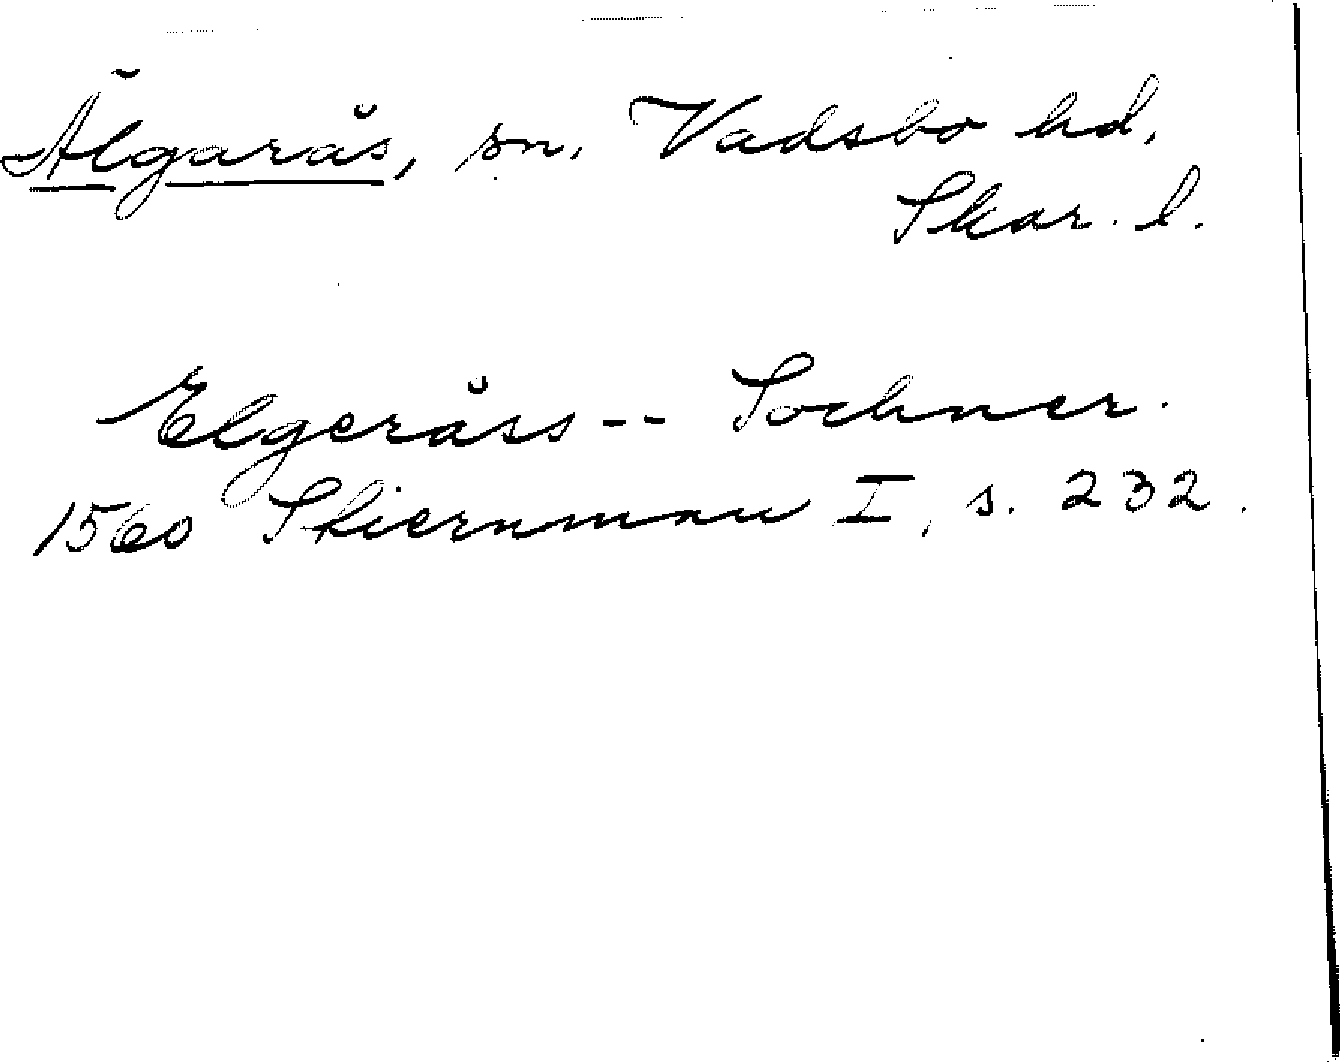 Älgarås, sn. Vadsbo hd.
Skar. l.
Elgeråss -- Sochner.
1560 Stiernman I, s. 232.